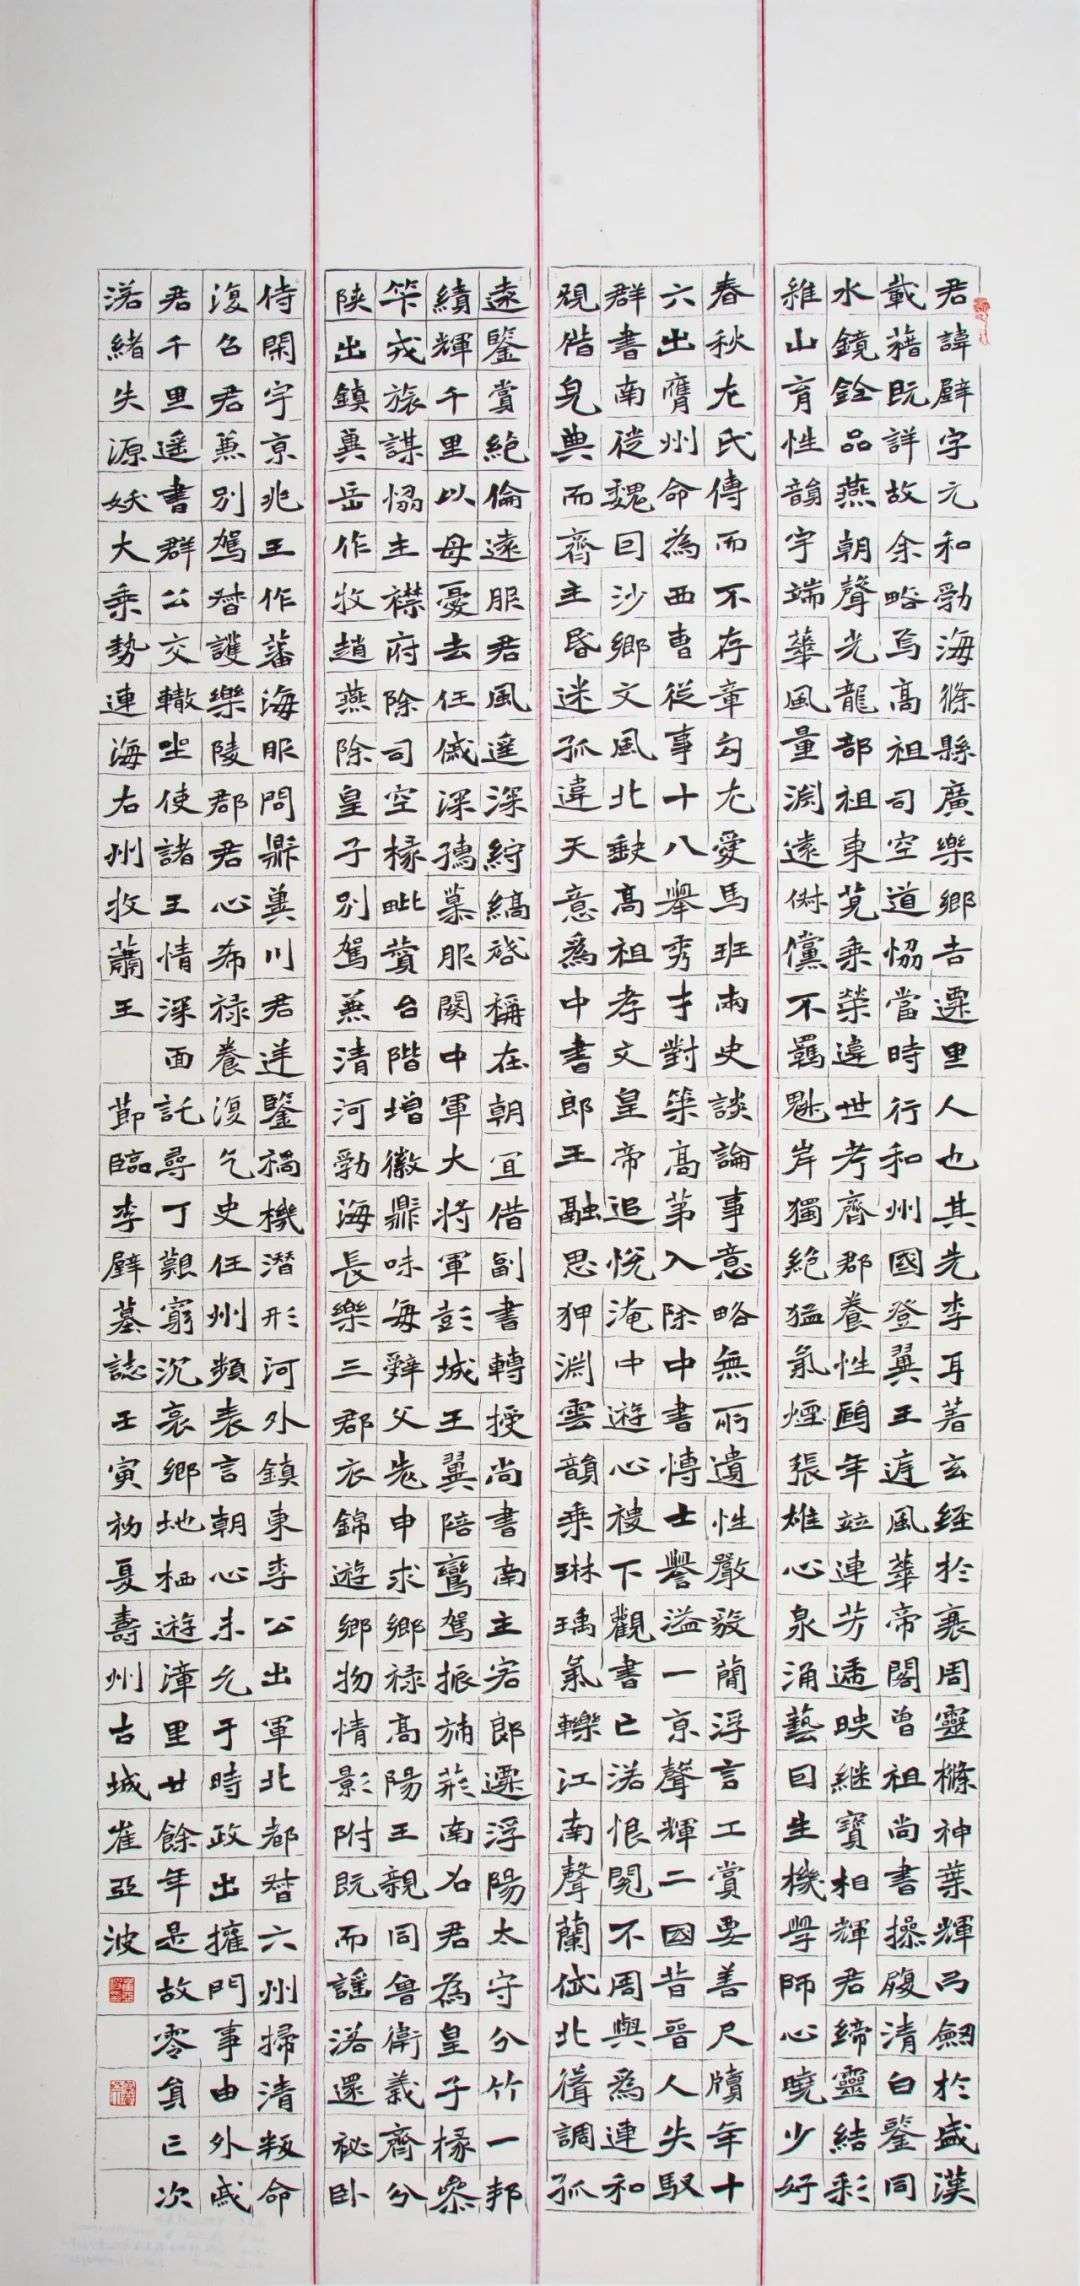 君諱璧字元和勃海條縣廣樂鄉吉遷里人也其先李耳著玄經於衰周靈條神葉輝劒於盛漢
載藉既詳故余略焉高祖司空道協當時行和州國登翼王庭風華帝閣曾祖尚書操履清白鑒同
水鏡銓品燕朝聲光龍部祖東莞乘榮違世考齊郡養性頤年竝連芳遞映繼寶相輝君締靈結彩
維山育性韻宇端華風量淵遠倜儻不羈魁岸獨絕猛氣煙張雄心泉涌藝因生機學師心曉少好
春秋左氏傳而不存章句尤愛馬班兩史談論事意略無所遺性嚴毅簡浮言工賞要善尺牘年十
六出膺州命為西曹從事十八舉秀才對策高第入除中書博士譽溢一京聲輝二國昔晉人失馭
群書南徙魏因沙鄉文風北缺高祖孝文皇帝追悅淹中遊心稷下觀書亡落恨閱不周與為連和
規借完典而齊主昏迷孤違天意為中書郎王融思狎淵雲韻乘琳瑀氣轢江南聲蘭岱北聳調孤
遠鑒賞絕倫遠服君風遙深紵縞啟稱在朝宜借副書轉授尚書南主客郎遷浮陽太守分竹一邦
續輝千里以母憂去任戚深孺慕服闋中軍大將軍彭城王翼陪鑾駕振旆荊南召君為皇子掾參
算戎旅謀協主襟府除司空掾毗贊台階增徽鼎味每辭父老申求鄉祿高陽王親同魯衛義齊分
陝出鎮冀岳作牧趙燕除皇子別駕兼清河勃海長樂三郡衣錦遊鄉物情影附既而謠落還祕臥
侍閑宇京兆王作蕃海服問鼎冀川君逆鑒禍機潛形河外鎮東李公出軍北都督六州掃清叛命
復召君兼別駕督護樂陵郡君心希祿養復乞史任州頻表言朝心未允于時政出擁門事由外戚
君千里遙書群公交轍坐使諸王情深面託尋丁艱窮沉哀鄉地栖遊漳里廿餘年是故零負已次
落緒失源妖大乘勢連海右州牧蕭王 節臨李璧墓誌壬寅初夏壽州古城崔亞波